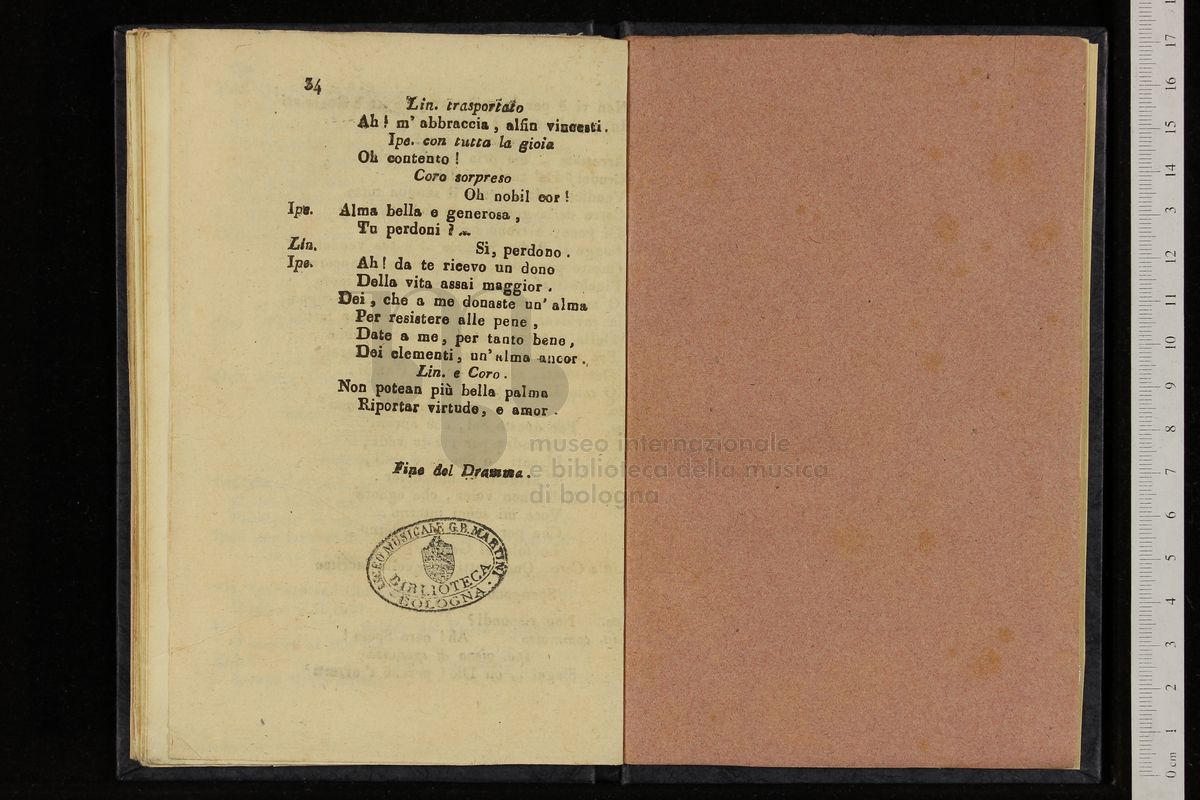 34
Lin. trasportato
Ah! m' abbraccia, alfin vincesti.
Ipe. con tutta la gioia
Oh contento!
Coro sorpreso
Oh nobil cor!
Ipe. Alma bella e generosa,
Tu perdoni?...
Lin. Si, perdono.
Ipe. Ah! da te ricevo un dono
Della vita assai maggior.
Dei, che a me donaste un' alma
Per resistere alle pene,
Date a me, per tanto bene,
Dei clementi, un' alma ancor.
Lin. e Coro.
Non potean più bella palma
Riportar virtude, e amor.
Fine del Dramma.
LICEO MUSICALE G.B. MARTINI
BIBLIOTECA
BOLOGNA
museo internazionale
e biblioteca della musica
di bologna
0 cm 1 2 3 4 5 6 7 8 9 10 11 12 13 14 15 16 17